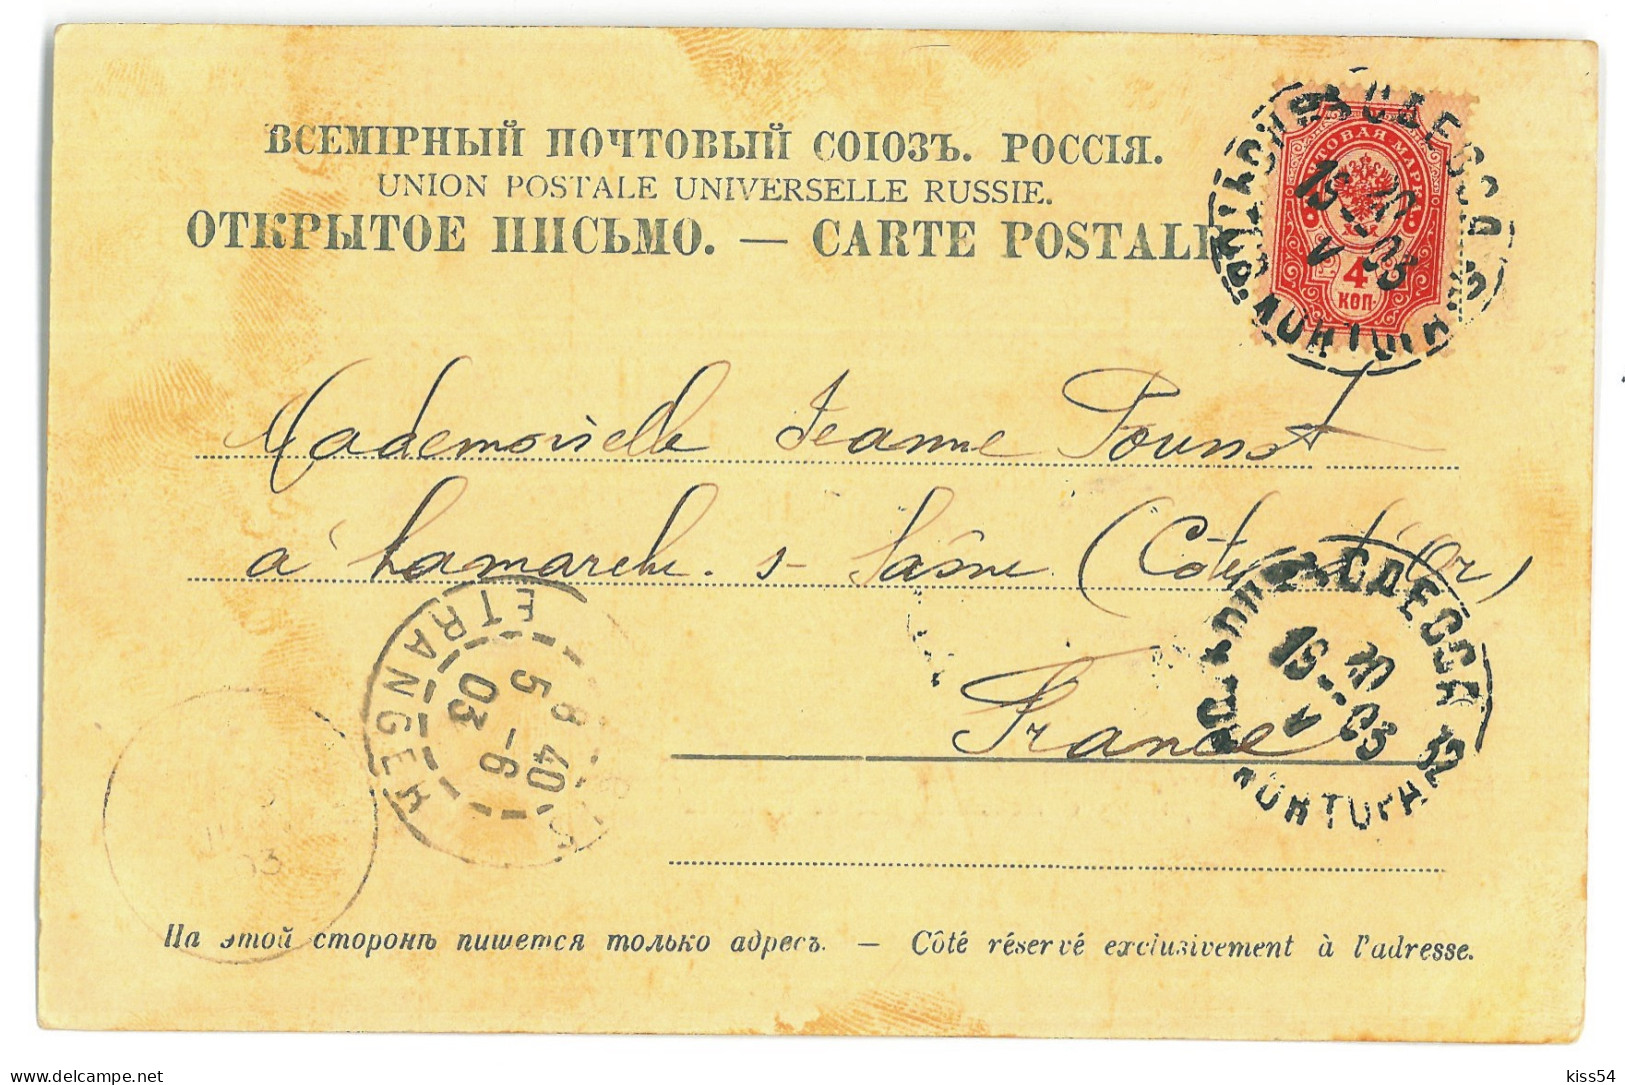 ВСЕМІРНЫЙ ПОЧТОВЫЙ СОЮЗЪ. РОССІЯ.
UNION POSTALE UNIVERSELLE RUSSIE.
ОТКРЫТОЕ ПИСЬМО. — CARTE POSTALE
ПОЧТОВАЯ МАРКА
4
КОП.
ОДЕССА
19 V 03
Mademoiselle Jeanne
à Lamarche s- Saône (Côte d'Or)
France
ОДЕССА 32
19 V 03
ETRANGER
8 40
5 - 6
03
03
На этой сторонѣ пишется только адресъ. — Côté réservé exclusivement à l'adresse.
kiss54